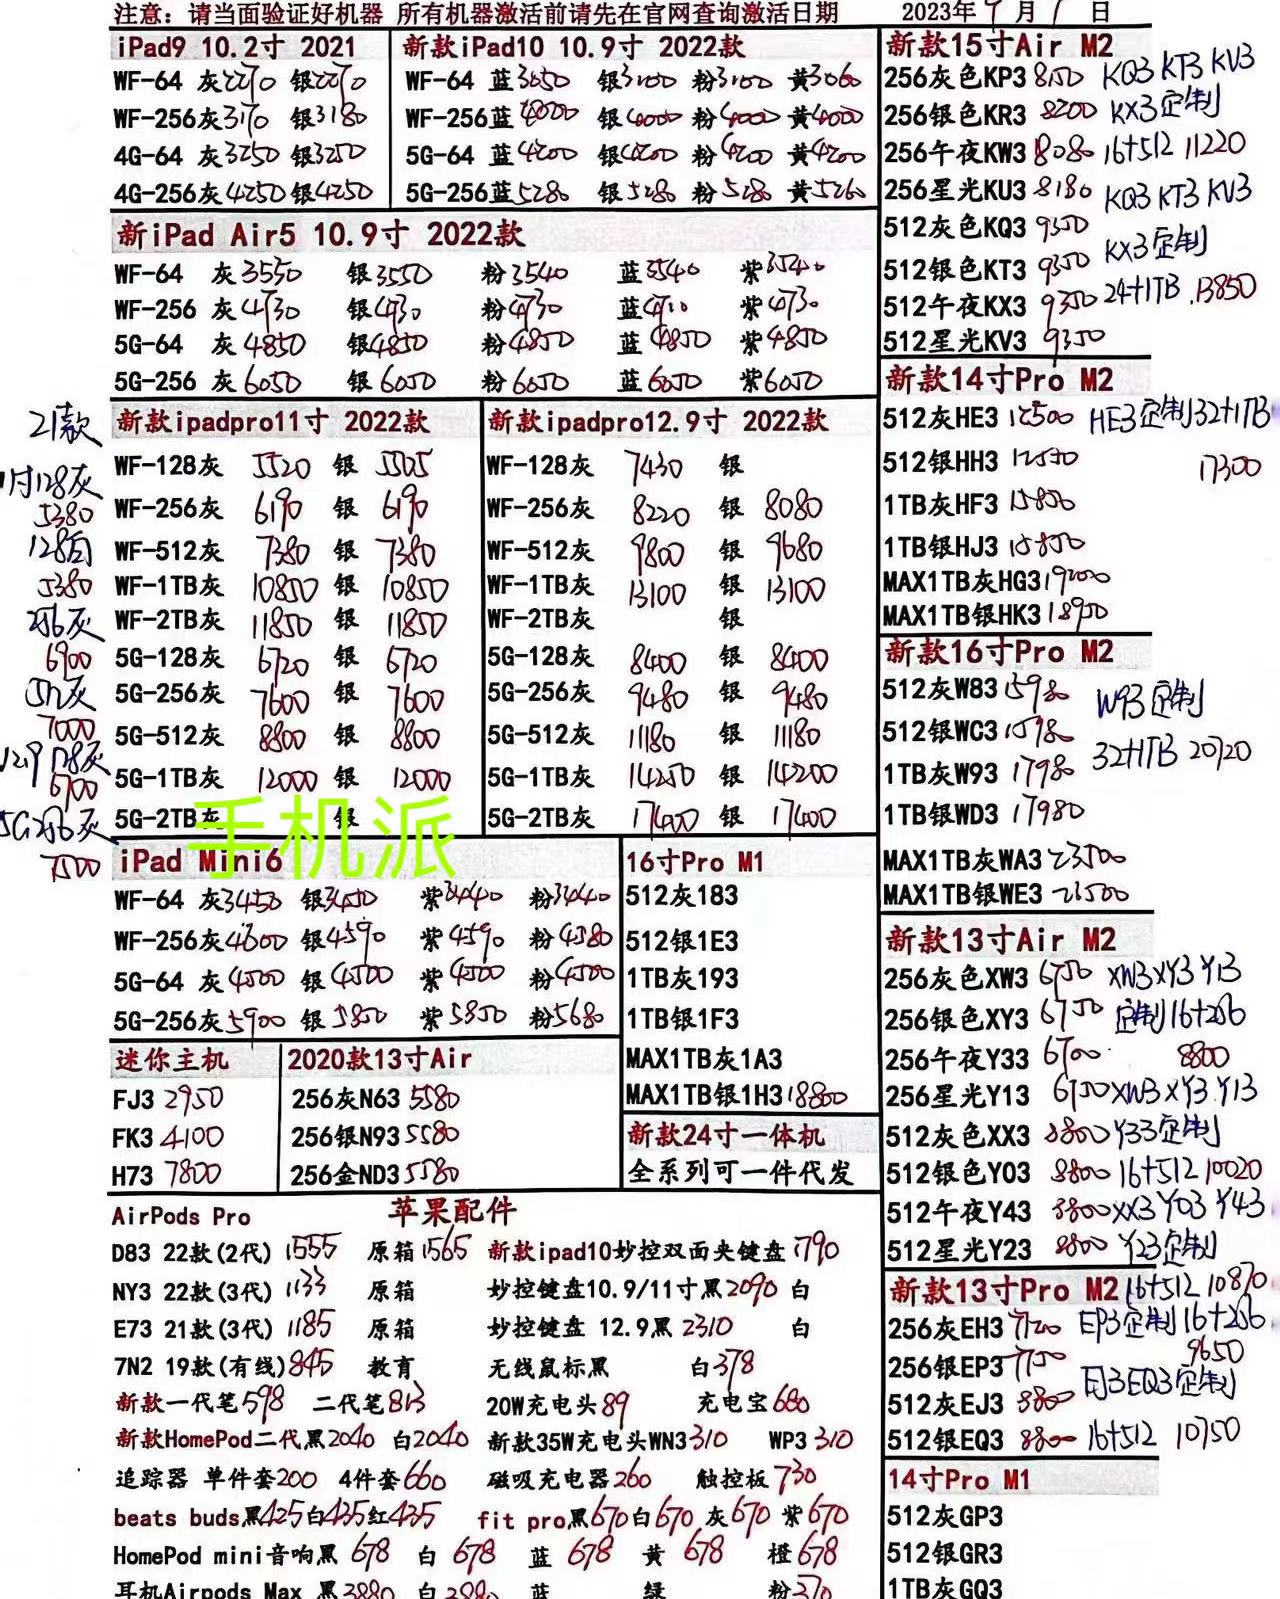 注意: 请当面验证好机器 所有机器激活前请先在官网查询激活日期 2023年9月1日
iPad9 10.2寸 2021
WF-64 灰2270 银2270
WF-256灰3170 银3180
4G-64 灰3250 银3250
4G-256灰4250 银4250
新款iPad10 10.9寸 2022款
WF-64 蓝3050 银3100 粉3100 黄3060
WF-256蓝4000 银4000 粉4000 黄4000
5G-64 蓝4200 银4200 粉4200 黄4200
5G-256蓝5280 银5280 粉5280 黄5260
新iPad Air5 10.9寸 2022款
WF-64 灰3550 银3550 粉3540 蓝3540 紫3540
WF-256 灰4730 银4730 粉4730 蓝4710 紫4730
5G-64 灰4850 银4850 粉4850 蓝4850 紫4850
5G-256 灰6050 银6050 粉6050 蓝6050 紫6050
21款
11寸128灰
5380
128白
5380
256灰
6900
512灰
7000
12.9 128灰
6700
5G256灰
7500
新款ipadpro11寸 2022款
WF-128灰 5520 银 5505
WF-256灰 6190 银 6190
WF-512灰 7380 银 7380
WF-1TB灰 10850 银 10850
WF-2TB灰 11850 银 11850
5G-128灰 6720 银 6720
5G-256灰 7600 银 7600
5G-512灰 8800 银 8800
5G-1TB灰 12000 银 12000
5G-2TB灰 银
手机派
新款ipadpro12.9寸 2022款
WF-128灰 7430 银
WF-256灰 8220 银 8080
WF-512灰 9800 银 9680
WF-1TB灰 13100 银 13100
WF-2TB灰 银
5G-128灰 8400 银 8400
5G-256灰 9480 银 9480
5G-512灰 11180 银 11180
5G-1TB灰 14250 银 14200
5G-2TB灰 17400 银 17400
iPad Mini6
WF-64 灰3450 银3450 紫3440 粉3440
WF-256灰4600 银4590 紫4590 粉4580
5G-64 灰4500 银4500 紫4500 粉4500
5G-256灰5900 银5850 紫5850 粉5680
16寸Pro M1
512灰183
512银1E3
1TB灰193
1TB银1F3
MAX1TB灰1A3
MAX1TB银1H3 18800
迷你主机
FJ3 2950
FK3 4100
H73 7800
2020款13寸Air
256灰N63 5580
256银N93 5580
256金ND3 5580
新款24寸一体机
全系列可一件代发
苹果配件
AirPods Pro
D83 22款(2代) 1555 原箱1565 新款ipad10妙控双面夹键盘1790
NY3 22款(3代) 1133 原箱 妙控键盘10.9/11寸黑2090 白
E73 21款(3代) 1185 原箱 妙控键盘 12.9黑 2310 白
7N2 19款(有线)845 教育 无线鼠标黑 白378
新款一代笔598 二代笔813 20W充电头89 充电宝680
新款HomePod二代黑2040 白2040 新款35W充电头WN3310 WP3 310
追踪器 单件套200 4件套660 磁吸充电器260 触控板730
beats buds黑425白435红435 fit pro黑670白670 灰670 紫670
HomePod mini音响黑 678 白 678 蓝 678 黄 678 橙678
耳机Airpods Max 黑3880 白3880 蓝 绿 粉
新款15寸Air M2
256灰色KP3 8150 KQ3 KT3 KV3
256银色KR3 8200 KX3定制
256午夜KW3 8080 16+512 11220
256星光KU3 8180 KQ3 KT3 KV3
512灰色KQ3 9350 KX3定制
512银色KT3 9350
512午夜KX3 9350 24+1TB 13850
512星光KV3 9350
新款14寸Pro M2
512灰HE3 12500 HE3定制32+1TB
512银HH3 12550 17300
1TB灰HF3 15800
1TB银HJ3 15850
MAX1TB灰HG3 19200
MAX1TB银HK3 18950
新款16寸Pro M2
512灰W83 15980 W93定制
512银WC3 15980
1TB灰W93 17980 32+1TB 20720
1TB银WD3 17980
MAX1TB灰WA3 23500
MAX1TB银WE3 23500
新款13寸Air M2
256灰色XW3 6750 XW3 XY3 Y13
256银色XY3 6750 定制16+256
256午夜Y33 6700 8800
256星光Y13 6750 XW3 XY3 Y13
512灰色XX3 8800 Y33定制
512银色Y03 8800 16+512 10020
512午夜Y43 8800 XX3 Y03 Y43
512星光Y23 8800 Y23定制
新款13寸Pro M2 16+512 10870
256灰EH3 7120 EP3定制16+256
256银EP3 7150 9650
512灰EJ3 8800 EJ3 EQ3定制
512银EQ3 8800 16+512 10750
14寸Pro M1
512灰GP3
512银GR3
1TB灰GQ3